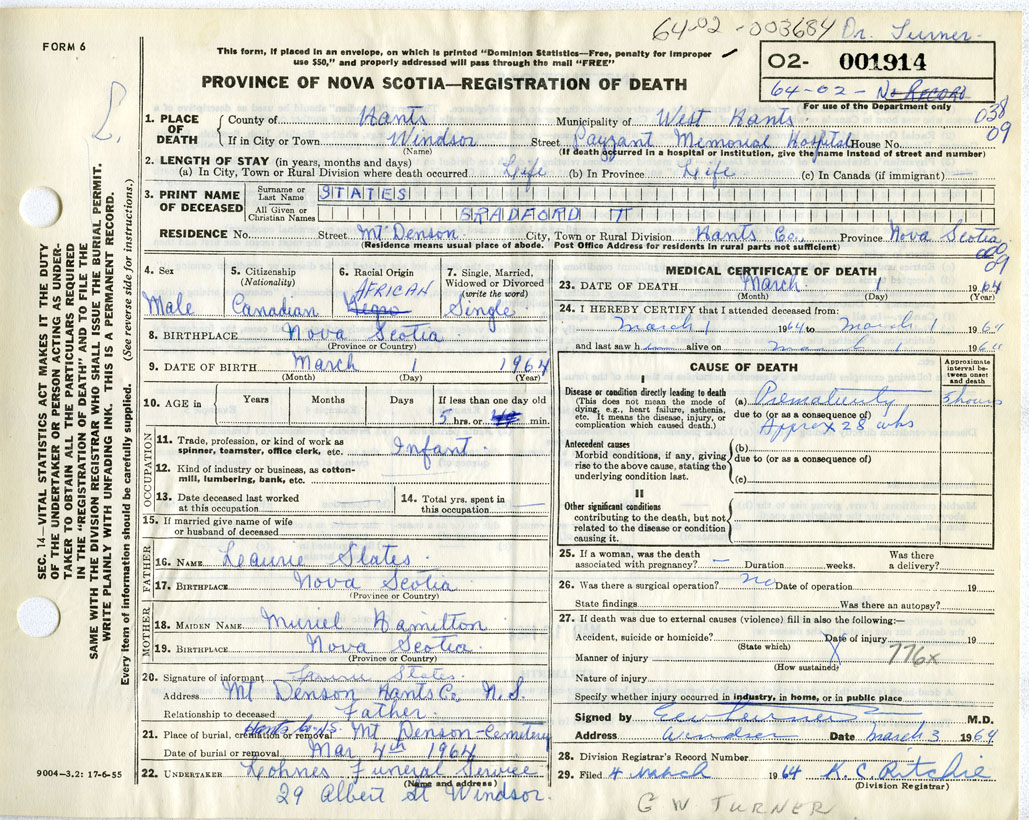 64-02-003684 Dr. Turner.
FORM 6
This form, if placed in an envelope, on which is printed "Dominion Statistics—Free, penalty for improper
use $50," and properly addressed will pass through the mail "FREE"
O2- 001914
64-02- No RECORD
For use of the Department only
PROVINCE OF NOVA SCOTIA—REGISTRATION OF DEATH
038
09
1. PLACE OF DEATH County of Hants Municipality of West Hants
If in City or Town Windsor Street Payzant Memorial Hospital House No.
(Name) (If death occurred in a hospital or institution, give the name instead of street and number)
2. LENGTH OF STAY (in years, months and days)
(a) In City, Town or Rural Division where death occurred Life (b) In Province Life (c) In Canada (if immigrant) —
3. PRINT NAME OF DECEASED
Surname or Last Name STATES
All Given or Christian Names BRADFORD T
RESIDENCE No. Street Mt Denson City, Town or Rural Division Hants Co., Province Nova Scotia
(Residence means usual place of abode. Post Office Address for residents in rural parts not sufficient)
09
4. Sex Male
5. Citizenship (Nationality) Canadian
6. Racial Origin AFRICAN Negro
7. Single, Married, Widowed or Divorced (write the word) Single
8. BIRTHPLACE Nova Scotia
(Province or Country)
9. DATE OF BIRTH March 1 1964
(Month) (Day) (Year)
10. AGE in Years Months Days If less than one day old
5 hrs. or min.
OCCUPATION
11. Trade, profession, or kind of work as
spinner, teamster, office clerk, etc. Infant
12. Kind of industry or business, as cotton-
mill, lumbering, bank, etc.
13. Date deceased last worked
at this occupation —
14. Total yrs. spent in
this occupation —
15. If married give name of wife
or husband of deceased
FATHER
16. NAME Laurie States
17. BIRTHPLACE Nova Scotia
(Province or Country)
MOTHER
18. MAIDEN NAME Muriel Hamilton
19. BIRTHPLACE Nova Scotia
(Province or Country)
20. Signature of informant Laurie States
Address Mt Denson Hants Co. N.S.
Relationship to deceased Father
21. Place of burial, cremation or removal Hants Co NS Mt Denson-Cemetery
Date of burial or removal Mar 4th 1964
22. UNDERTAKER Lohnes Funeral Service
(Name and address)
29 Albert St Windsor.
MEDICAL CERTIFICATE OF DEATH
23. DATE OF DEATH March 1 1964
(Month) (Day) (Year)
24. I HEREBY CERTIFY that I attended deceased from:
March 1 1964 to March 1 1964
and last saw h alive on March 1 1964
CAUSE OF DEATH
Approximate interval between onset and death
I
Disease or condition directly leading to death
(This does not mean the mode of
dying, e.g., heart failure, asthenia,
etc. It means the disease, injury, or
complication which caused death.)
(a) Prematurity 5 hours
due to (or as a consequence of)
Approx 28 wks
Antecedent causes
Morbid conditions, if any, giving
rise to the above cause, stating the
underlying condition last.
(b)
due to (or as a consequence of)
(c)
II
Other significant conditions
contributing to the death, but not
related to the disease or condition
causing it.
25. If a woman, was the death
associated with pregnancy? — Duration weeks. Was there
a delivery?
26. Was there a surgical operation? no Date of operation 19
State findings Was there an autopsy?
27. If death was due to external causes (violence) fill in also the following:—
Accident, suicide or homicide? Date of injury 19
(State which)
Manner of injury 776x
(How sustained)
Nature of injury
Specify whether injury occurred in industry, in home, or in public place
Signed by G W Turner M.D.
Address Windsor Date March 3 1964
28. Division Registrar's Record Number
29. Filed 4 March 1964 K. C. Ritchie
(Division Registrar)
G W TURNER
SEC. 14—VITAL STATISTICS ACT MAKES IT THE DUTY
OF THE UNDERTAKER OR PERSON ACTING AS UNDER-
TAKER TO OBTAIN ALL THE PARTICULARS REQUIRED
IN THE "REGISTRATION OF DEATH" AND TO FILE THE
SAME WITH THE DIVISION REGISTRAR WHO SHALL ISSUE THE BURIAL PERMIT.
WRITE PLAINLY WITH UNFADING INK. THIS IS A PERMANENT RECORD.
Every item of information should be carefully supplied. (See reverse side for instructions.)
9004—3.2: 17-6-55